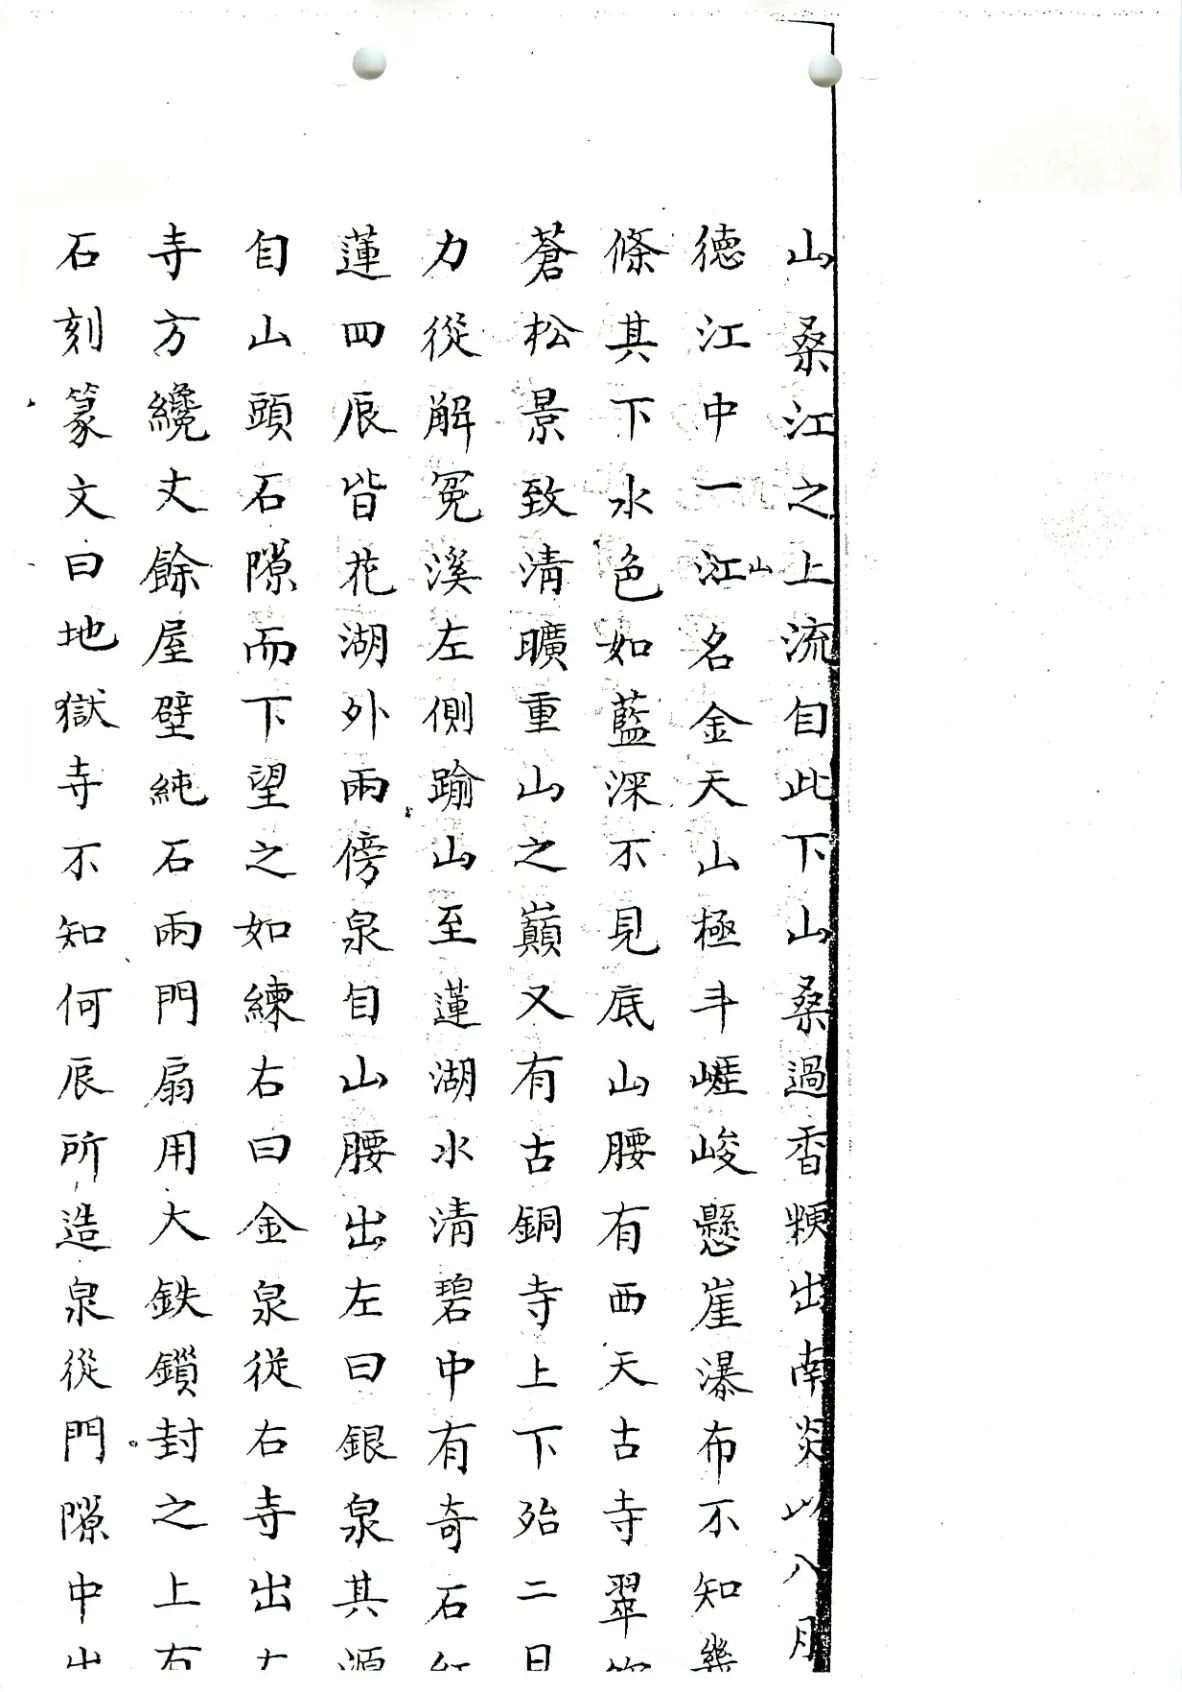 山桑江之上流自此下山桑過香粳出南炎以入月
徳江中一江山名金天山極斗崕峻懸崖瀑布不知幾
條其下水色如藍深不見底山腰有西天古寺翠
蒼松景致淸曠重山之巔又有古銅寺上下殆二日
力從解冤溪左側踰山至蓮湖水淸碧中有奇石紅
蓮四辰皆花湖外兩傍泉自山腰出左曰銀泉其源
自山頭石隙而下望之如練右曰金泉從右寺出
寺方纔丈餘屋壁純石兩門扇用大鉄鎖封之上有
石刻篆文曰地獄寺不知何辰所造泉從門隙中出